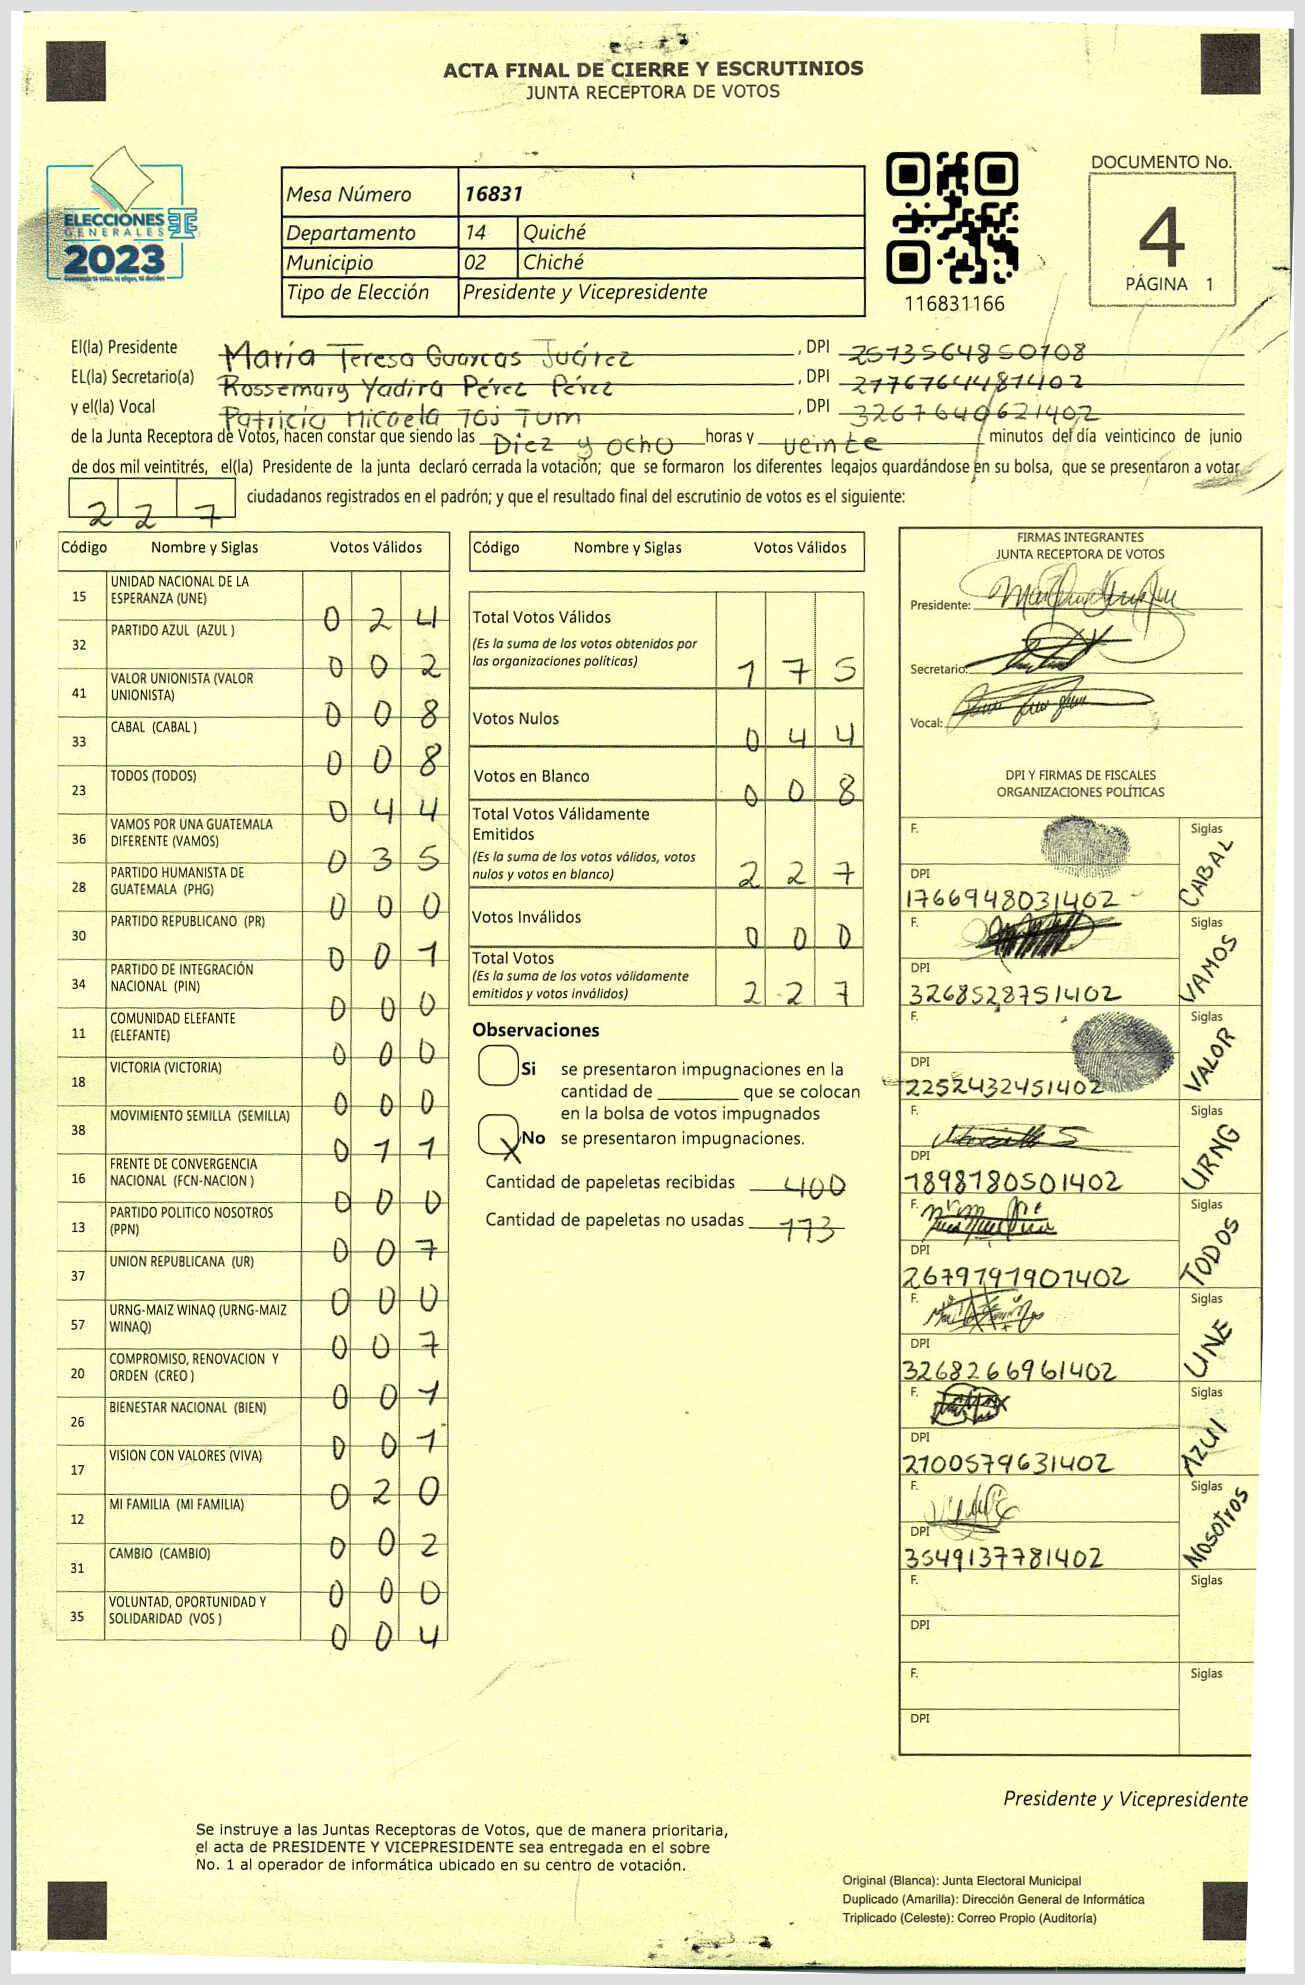 ACTA FINAL DE CIERRE Y ESCRUTINIOS
JUNTA RECEPTORA DE VOTOS
ELECCIONES
GENERALES
2023
Mesa Número 16831
Departamento 14 Quiché
Municipio 02 Chiché
Tipo de Elección Presidente y Vicepresidente
116831166
DOCUMENTO No.
4
PÁGINA 1
El(la) Presidente María Teresa Guarcas Juárez, DPI 2573564850108
EL(la) Secretario(a) Rossemary Yadira Pérez Pérez, DPI 2176764481402
y el(la) Vocal Patricia Micaela Toj Tum, DPI 3267640621402
de la Junta Receptora de Votos, hacen constar que siendo las Diez y ocho horas y veinte minutos del día veinticinco de junio
de dos mil veintitrés, el(la) Presidente de la junta declaró cerrada la votación; que se formaron los diferentes legajos guardándose en su bolsa, que se presentaron a votar
227 ciudadanos registrados en el padrón; y que el resultado final del escrutinio de votos es el siguiente:
Código Nombre y Siglas Votos Válidos
15 UNIDAD NACIONAL DE LA ESPERANZA (UNE) 0 2 4
32 PARTIDO AZUL (AZUL ) 0 0 2
41 VALOR UNIONISTA (VALOR UNIONISTA) 0 0 8
33 CABAL (CABAL ) 0 0 8
23 TODOS (TODOS) 0 4 4
36 VAMOS POR UNA GUATEMALA DIFERENTE (VAMOS) 0 3 5
28 PARTIDO HUMANISTA DE GUATEMALA (PHG) 0 0 0
30 PARTIDO REPUBLICANO (PR) 0 0 1
34 PARTIDO DE INTEGRACIÓN NACIONAL (PIN) 0 0 0
11 COMUNIDAD ELEFANTE (ELEFANTE) 0 0 0
18 VICTORIA (VICTORIA) 0 0 0
38 MOVIMIENTO SEMILLA (SEMILLA) 0 1 1
16 FRENTE DE CONVERGENCIA NACIONAL (FCN-NACION ) 0 0 0
13 PARTIDO POLITICO NOSOTROS (PPN) 0 0 7
37 UNION REPUBLICANA (UR) 0 0 0
57 URNG-MAIZ WINAQ (URNG-MAIZ WINAQ) 0 0 7
20 COMPROMISO, RENOVACION Y ORDEN (CREO ) 0 0 1
26 BIENESTAR NACIONAL (BIEN) 0 0 1
17 VISION CON VALORES (VIVA) 0 2 0
12 MI FAMILIA (MI FAMILIA) 0 0 2
31 CAMBIO (CAMBIO) 0 0 0
35 VOLUNTAD, OPORTUNIDAD Y SOLIDARIDAD (VOS ) 0 0 4
Código Nombre y Siglas Votos Válidos
Total Votos Válidos 1 7 5
(Es la suma de los votos obtenidos por
las organizaciones políticas)
Votos Nulos 0 4 4
Votos en Blanco 0 0 8
Total Votos Válidamente
Emitidos
(Es la suma de los votos válidos, votos
nulos y votos en blanco) 2 2 7
Votos Inválidos 0 0 0
Total Votos
(Es la suma de los votos válidamente
emitidos y votos inválidos) 2 2 7
Observaciones
Si se presentaron impugnaciones en la
cantidad de ________ que se colocan
en la bolsa de votos impugnados
X No se presentaron impugnaciones.
Cantidad de papeletas recibidas 400
Cantidad de papeletas no usadas 173
FIRMAS INTEGRANTES
JUNTA RECEPTORA DE VOTOS
Presidente:
Secretario:
Vocal:
DPI Y FIRMAS DE FISCALES
ORGANIZACIONES POLÍTICAS
F. Siglas CABAL
DPI 1766948031402
F. Siglas VAMOS
DPI 3268528751402
F. Siglas VALOR
DPI 2252432451402
F. Siglas URNG
DPI 1898180501402
F. Siglas TODOS
DPI 2679797901402
F. Siglas UNE
DPI 3268266961402
F. Siglas AZUl
DPI 2100579631402
F. Siglas Nosotros
DPI 3549137781402
F. Siglas
DPI
F. Siglas
DPI
Presidente y Vicepresidente
Se instruye a las Juntas Receptoras de Votos, que de manera prioritaria,
el acta de PRESIDENTE Y VICEPRESIDENTE sea entregada en el sobre
No. 1 al operador de informática ubicado en su centro de votación.
Original (Blanca): Junta Electoral Municipal
Duplicado (Amarilla): Dirección General de Informática
Triplicado (Celeste): Correo Propio (Auditoría)